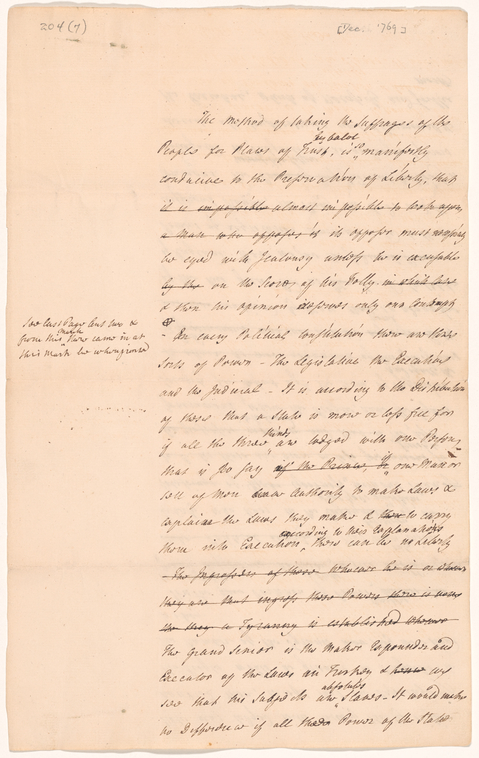 204 (7)
[Dec. 1769]
The method of taking the Suffrages of the
by balot
People for Places of Trust, is so manifestly
conducive to the Preservation of Liberty, that
it is impossible almost impossible to look upon
a man who opposes is its opposer must necessarily
be eyed with Jealousy unless he is excusable
by the on the Score of his Folly in which case
& then his opinion deserves only our Contempt
See last Page but two &
from this mark
this mark be
- In every Political Constitution there are three
Sorts of Power - The Legislative the Executive
and the Judicial - It is according to the Distribution
of these that a State is more or less free for
kinds
if all the three are lodged with one Person
that is to say if the Prince or one Man or
sett of Men have Authority to make Laws &
explain the Laws they make & then to carry
according to their Explanations
them into Execution, there can be no Liberty
The Ingrosser of these Whoever he is or whoever
they are that ingross these Powers there is
a Tyranny is established
The Grand Senior is the Maker Expounder and
Executor of the Laws in Turkey & hence we
absolute
see that his Subjects are Slaves - It would make
no Difference if all the Power of the State